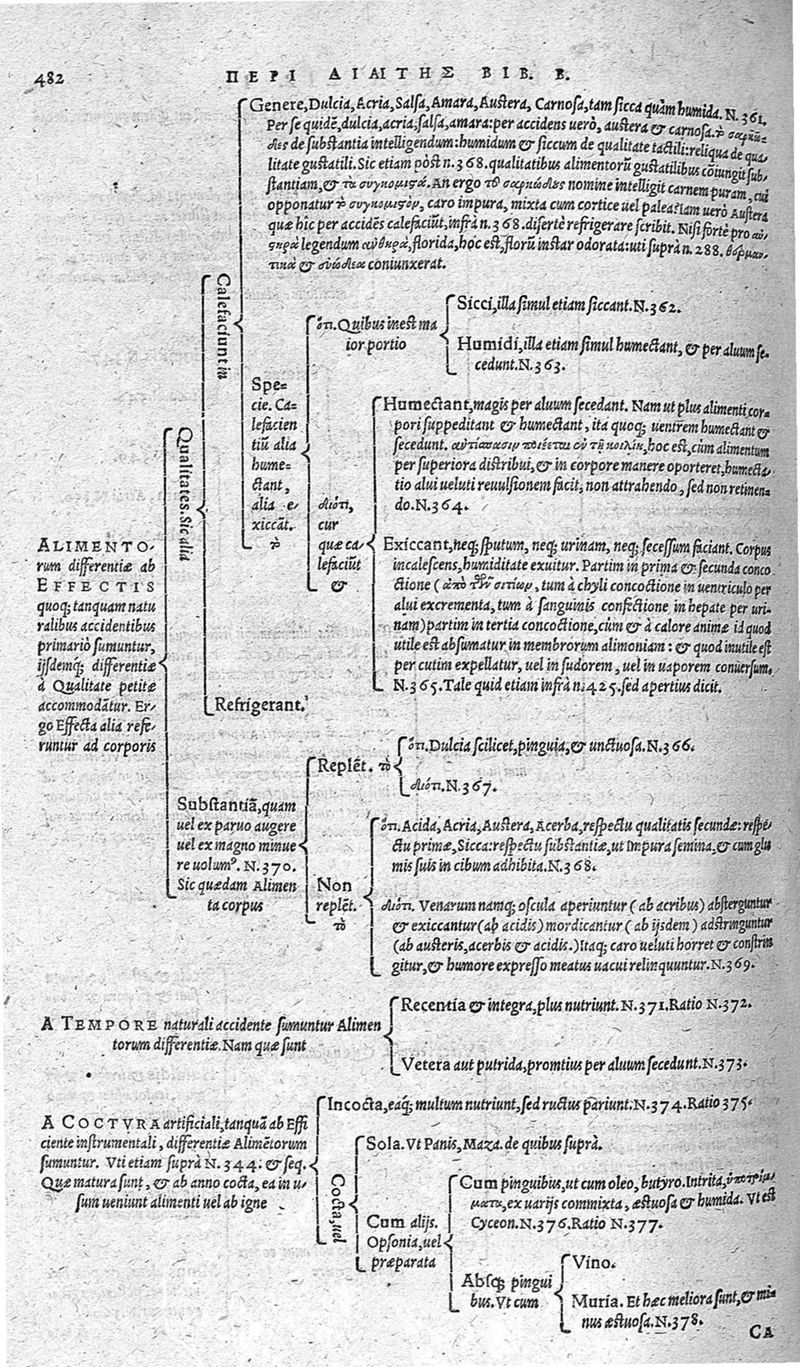 482
ΠΕΡΙ ΔΙΑΙΤΗΣ ΒΙΒ. Β.
Genere, Dulcia, Acria, Salsa, Amara, Austera, Carnosa, tam sicca quàm humida. N. 361.
Per se quidē, dulcia, acria, salsa, amara: per accidens uerò, austera & carnosa. τὸ σαρκῶ-
δες de substantia intelligendum: humidum & siccum de qualitate tactili: reliqua de qua-
litate gustatili. Sic etiam pòst n. 368. qualitatibus alimentorū gustatilibus cōiungit sub-
stantiam, & τὰ συγκομιστά. An ergo τοῦ σαρκώδες nomine intelligit carnem puram, cui
opponatur τὸ συγκομιστὸν, caro impura, mixta cum cortice uel palea? Iam uerò Austera
quæ hîc per accidēs calefaciūt, infrà n. 368. disertè refrigerare scribit. Nisi fortè pro αὐ-
στηρὰ legendum ἀνθηρὰ, florida, hoc est, florū instar odorata: uti suprà n. 288. θερμαν-
τικὰ & εὐώδεα coniunxerat.
Calefaciunt in
ὅτι. Quibus inest ma
ior portio
Sicci, illa simul etiam siccant. N. 362.
Humidi, illa etiam simul humectant, & per aluum se-
cedunt. N. 363.
Spe-
cie. Ca-
lefacien
tiū alia
hume-
ctant,
alia e-
xiccāt.
τὸ
διότι,
cur
quæ ca-
lefaciūt
&
Humectant, magis per aluum secedant. Nam ut plus alimenti cor-
pori suppeditant & humectant, ita quoq; uentrem humectant &
secedunt. ἀντίσπασιν ποιέεται ἐν τῇ κοιλίῃ, hoc est, cùm alimentum
per superiora distribui, & in corpore manere oporteret, humecta-
tio alui ueluti reuulsionem facit, non attrahendo, sed non retinen-
do. N. 364.
Exiccant, neq; sputum, neq; urinam, neq; secessum faciant. Corpus
incalescens, humiditate exuitur. Partim in prima & secunda conco
ctione (ἀπὸ τῶν σιτίων, tum à chyli concoctione in uentriculo per
alui excrementa, tum à sanguinis confectione in hepate per uri-
nam) partim in tertia concoctione, cùm & à calore animæ id quod
utile est absumatur in membrorum alimoniam: & quod inutile est
per cutim expellatur, uel in sudorem, uel in uaporem conuersum.
N. 365. Tale quid etiam infrà n. 425. sed apertius dicit.
Qualitates. Sic alia
Refrigerant.
ALIMENTO-
rum differentiæ ab
EFFECTIS
quoq; tanquam natu
ralibus accidentibus
primariò sumuntur,
ijsdemq; differentiæ
à Qualitate petitæ
accommodātur. Er-
go Effecta alia refe-
runtur ad corporis
Substantiā, quam
uel ex paruo augere
uel ex magno minue
re uolumꝰ. N. 370.
Sic quædam Alimen
ta corpus
Replēt. τὸ
ὅτι. Dulcia scilicet, pinguia, & unctuosa. N. 366.
διότι. N. 367.
Non
replēt.
τὸ
ὅτι. Acida, Acria, Austera, Acerba, respectu qualitatis secundæ: respe-
ctu primæ, Sicca: respectu substantiæ, ut Impura semina, & cum glu
mis suis in cibum adhibita. N. 368.
διότι. Venarum namq; oscula aperiuntur (ab acribus) absterguntur
& exiccantur (ab acidis) mordicantur (ab ijsdem) adstringuntur
(ab austeris, acerbis & acidis.) Itaq; caro ueluti horret & constrin
gitur, & humore expresso meatus uacui relinquuntur. N. 369.
A TEMPORE naturali accidente sumuntur Alimen
torum differentiæ. Nam quæ sunt
Recentia & integra, plus nutriunt. N. 371. Ratio N. 372.
Vetera aut putrida, promtius per aluum secedunt. N. 373.
A COCTVRA artificiali, tanquā ab Effi
ciente instrumentali, differentiæ Alimētorum
sumuntur. Vti etiam suprà N. 344: & seq.
Quæ matura sunt, & ab anno cocta, ea in u-
sum ueniunt alimenti uel ab igne
Incocta, eaq; multum nutriunt, sed ructus pariunt. N. 374. Ratio 375.
Cocta, uel
Sola. Vt Panis, Maza. de quibus suprà.
Cum alijs.
Opsonia, uel
præparata
Cum pinguibus, ut cum oleo, butyro. Intrita, ὑποτρίμ-
ματα, ex uarijs commixta, æstuosa & humida. Vt est
Cyceon. N. 376. Ratio N. 377.
Absq; pingui
bus. Vt cum
Vino.
Muria. Et hæc meliora sunt, & mi-
nus æstuosa. N. 378.
CA